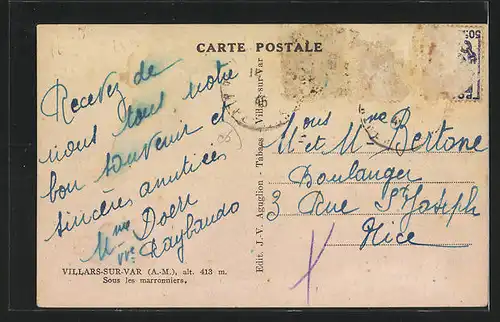 CARTE POSTALE
Recevez de
nous tous notre
bon souvenir et
sincères amitiées
Mmes Doen
Vve Raybaudo
VILLARS-SUR-VAR (A.-M.), alt. 413 m.
Sous les marronniers.
Edit. J.-V. Aguglion - Tabacs - Villars-sur-Var
50
Mous et Mme Bertone
Boulanger
3 Rue St Joseph
Nice